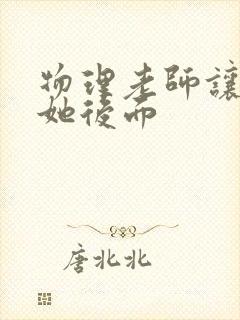 物理老師讓
她後面
唐北北